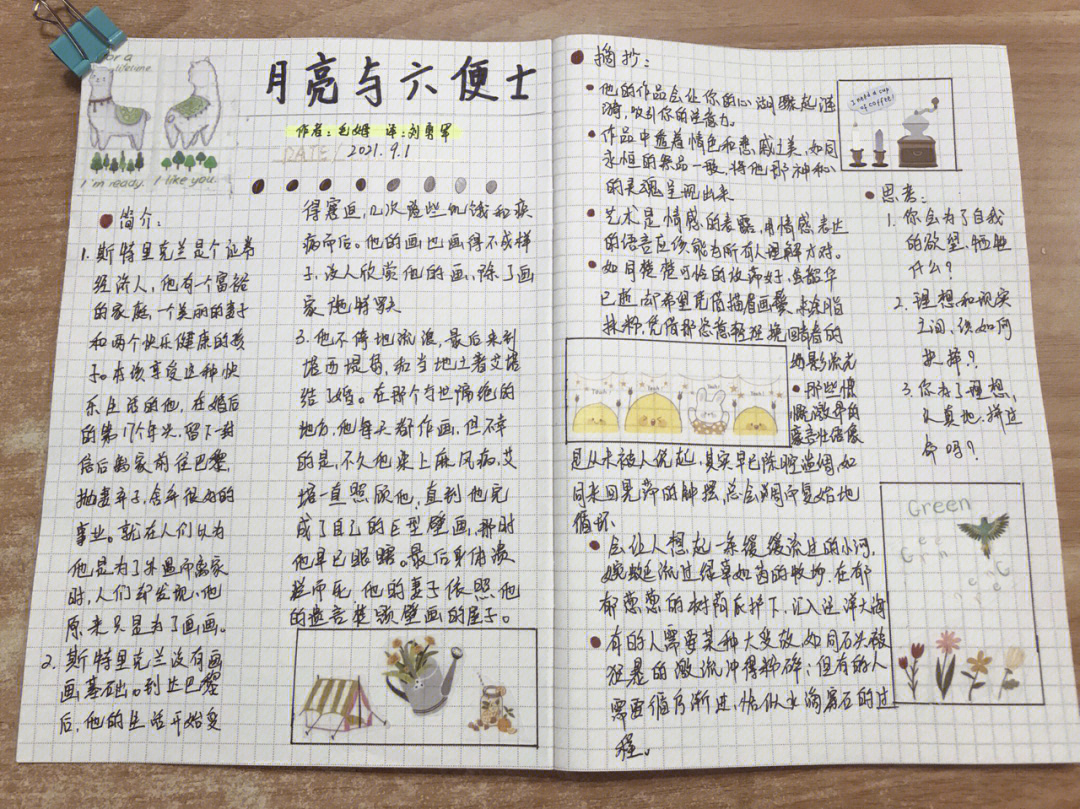 for a
lifetime
I'm ready. I like you.
月亮与六便士
作者:毛姆 译:刘勇军
DATE/
2021.9.1
简介:
1. 斯特里克兰是个证券
经济人,他有一个富裕
的家庭,一个美丽的妻子
和两个快乐健康的孩
子。本该享受这种快
乐生活的他,在婚后
的第17个年头,留下一封
信后离家前往巴黎,
抛妻弃子,舍弃很好的
事业。就在人们以为
他是为了外遇而离家
时,人们却发现,他
原来只是为了画画。
2. 斯特里克兰没有画
画基础。到达巴黎
后,他的生活开始变
得窘迫,几次险些饥饿和疾
病而后。他的画也画得不成样
子,没人欣赏他的画,除了画
家施特略夫
3. 他不停地流浪,最后来到
塔西提岛,和当地土著艾塔
结了婚。在那个与世隔绝的
地方,他每天都作画,但不幸
的是,不久他染上麻风病,艾
塔一直照顾他,直到他完
成了自己的巨型壁画,那时
他早已眼瞎。最后身体溃
烂而死 他的妻子依照他
的遗言焚毁壁画的屋子。
摘抄:
他的作品会让你的心湖骤起涟
漪,吸引你的注意力。
作品中透着情色和悲戚之美,如同
永恒的祭品一般,将他那神和
的灵魂呈现出来
艺术是情感的表露,用情感表达
的语言应该能为所有人理解方对。
如同楚楚可怜的放荡女子,虽韶华
已逝,却希望凭借描眉画鬓,涂脂
抹粉,凭借那
轻狂挽回青春的
幻影流光
那些慷
慨激昂的
豪言壮语像
是从未被人说起,其实早已陈腔滥调,如
同来回晃荡的钟摆,总会周而复始地
循环
会让人想起一条缓缓流过的小河,
蜿蜒流过绿草如茵的牧场,在郁
郁葱葱的树荫庇护下,汇入汪洋大海
有的人需要某种大变故,如同石头被
狂暴的激流冲得粉碎;但有的人
需要循序渐进,恰似水滴穿石的过
程。
I need a cup
of coffee!
思考:
1. 你会为了自我
的欲望,牺牲
什么?
2. 理想和现实
之间,该如何
抉择?
3. 你为了理想,
认真地,拼过
命吗?
Yeah!
Yeah!
Yeah!
Green